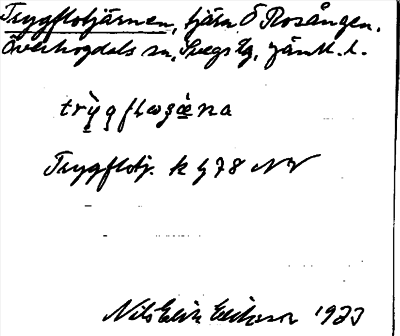 Tryggflotjärnen, tjärn Ö Rosången,
Överhogdals sn, Svegs tg, Jämtl. l.
trỳgflωʒæ̀na
Tryggflotj. k h 78 NV
Nils Erik Eriksson 1933